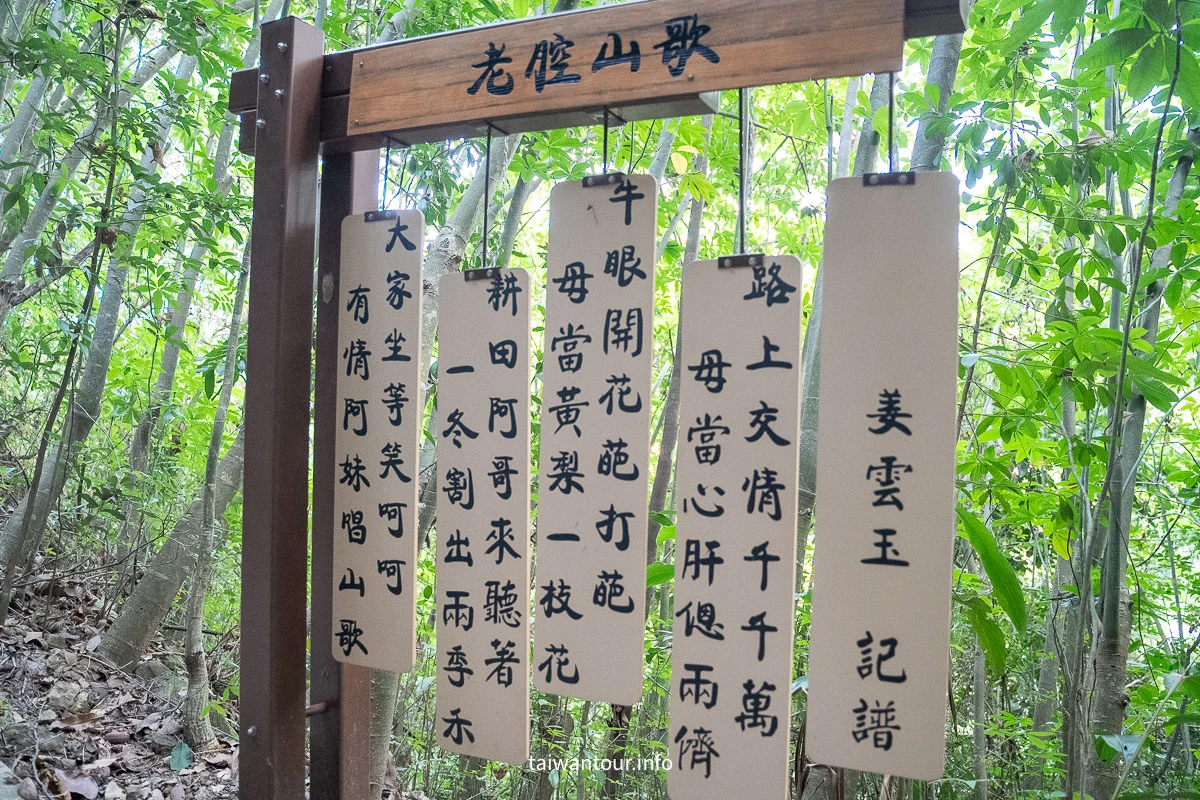 老腔山歌
大家坐等笑呵呵
有情阿妹唱山歌
耕田阿哥來聽著
一冬割出兩季禾
牛眼開花葩打葩
毋當黃梨一枝花
路上交情千千萬
毋當心肝兩儕
姜雲玉 記譜
taiwantour.info